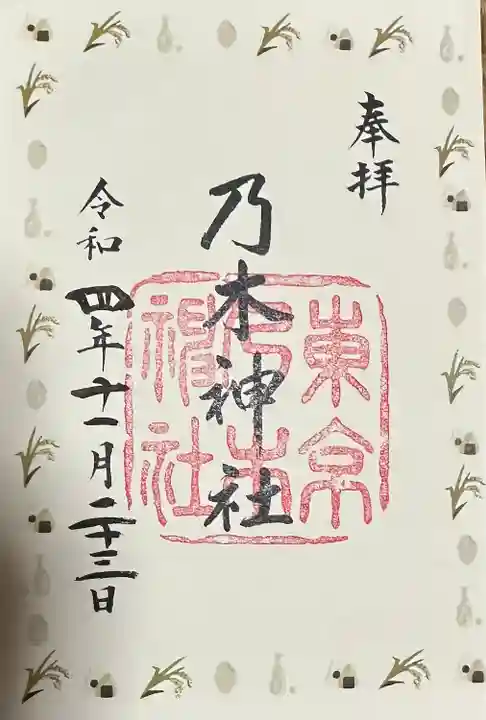 奉拝
乃木神社
東京
乃木
神社
令和四年十一月二十三日